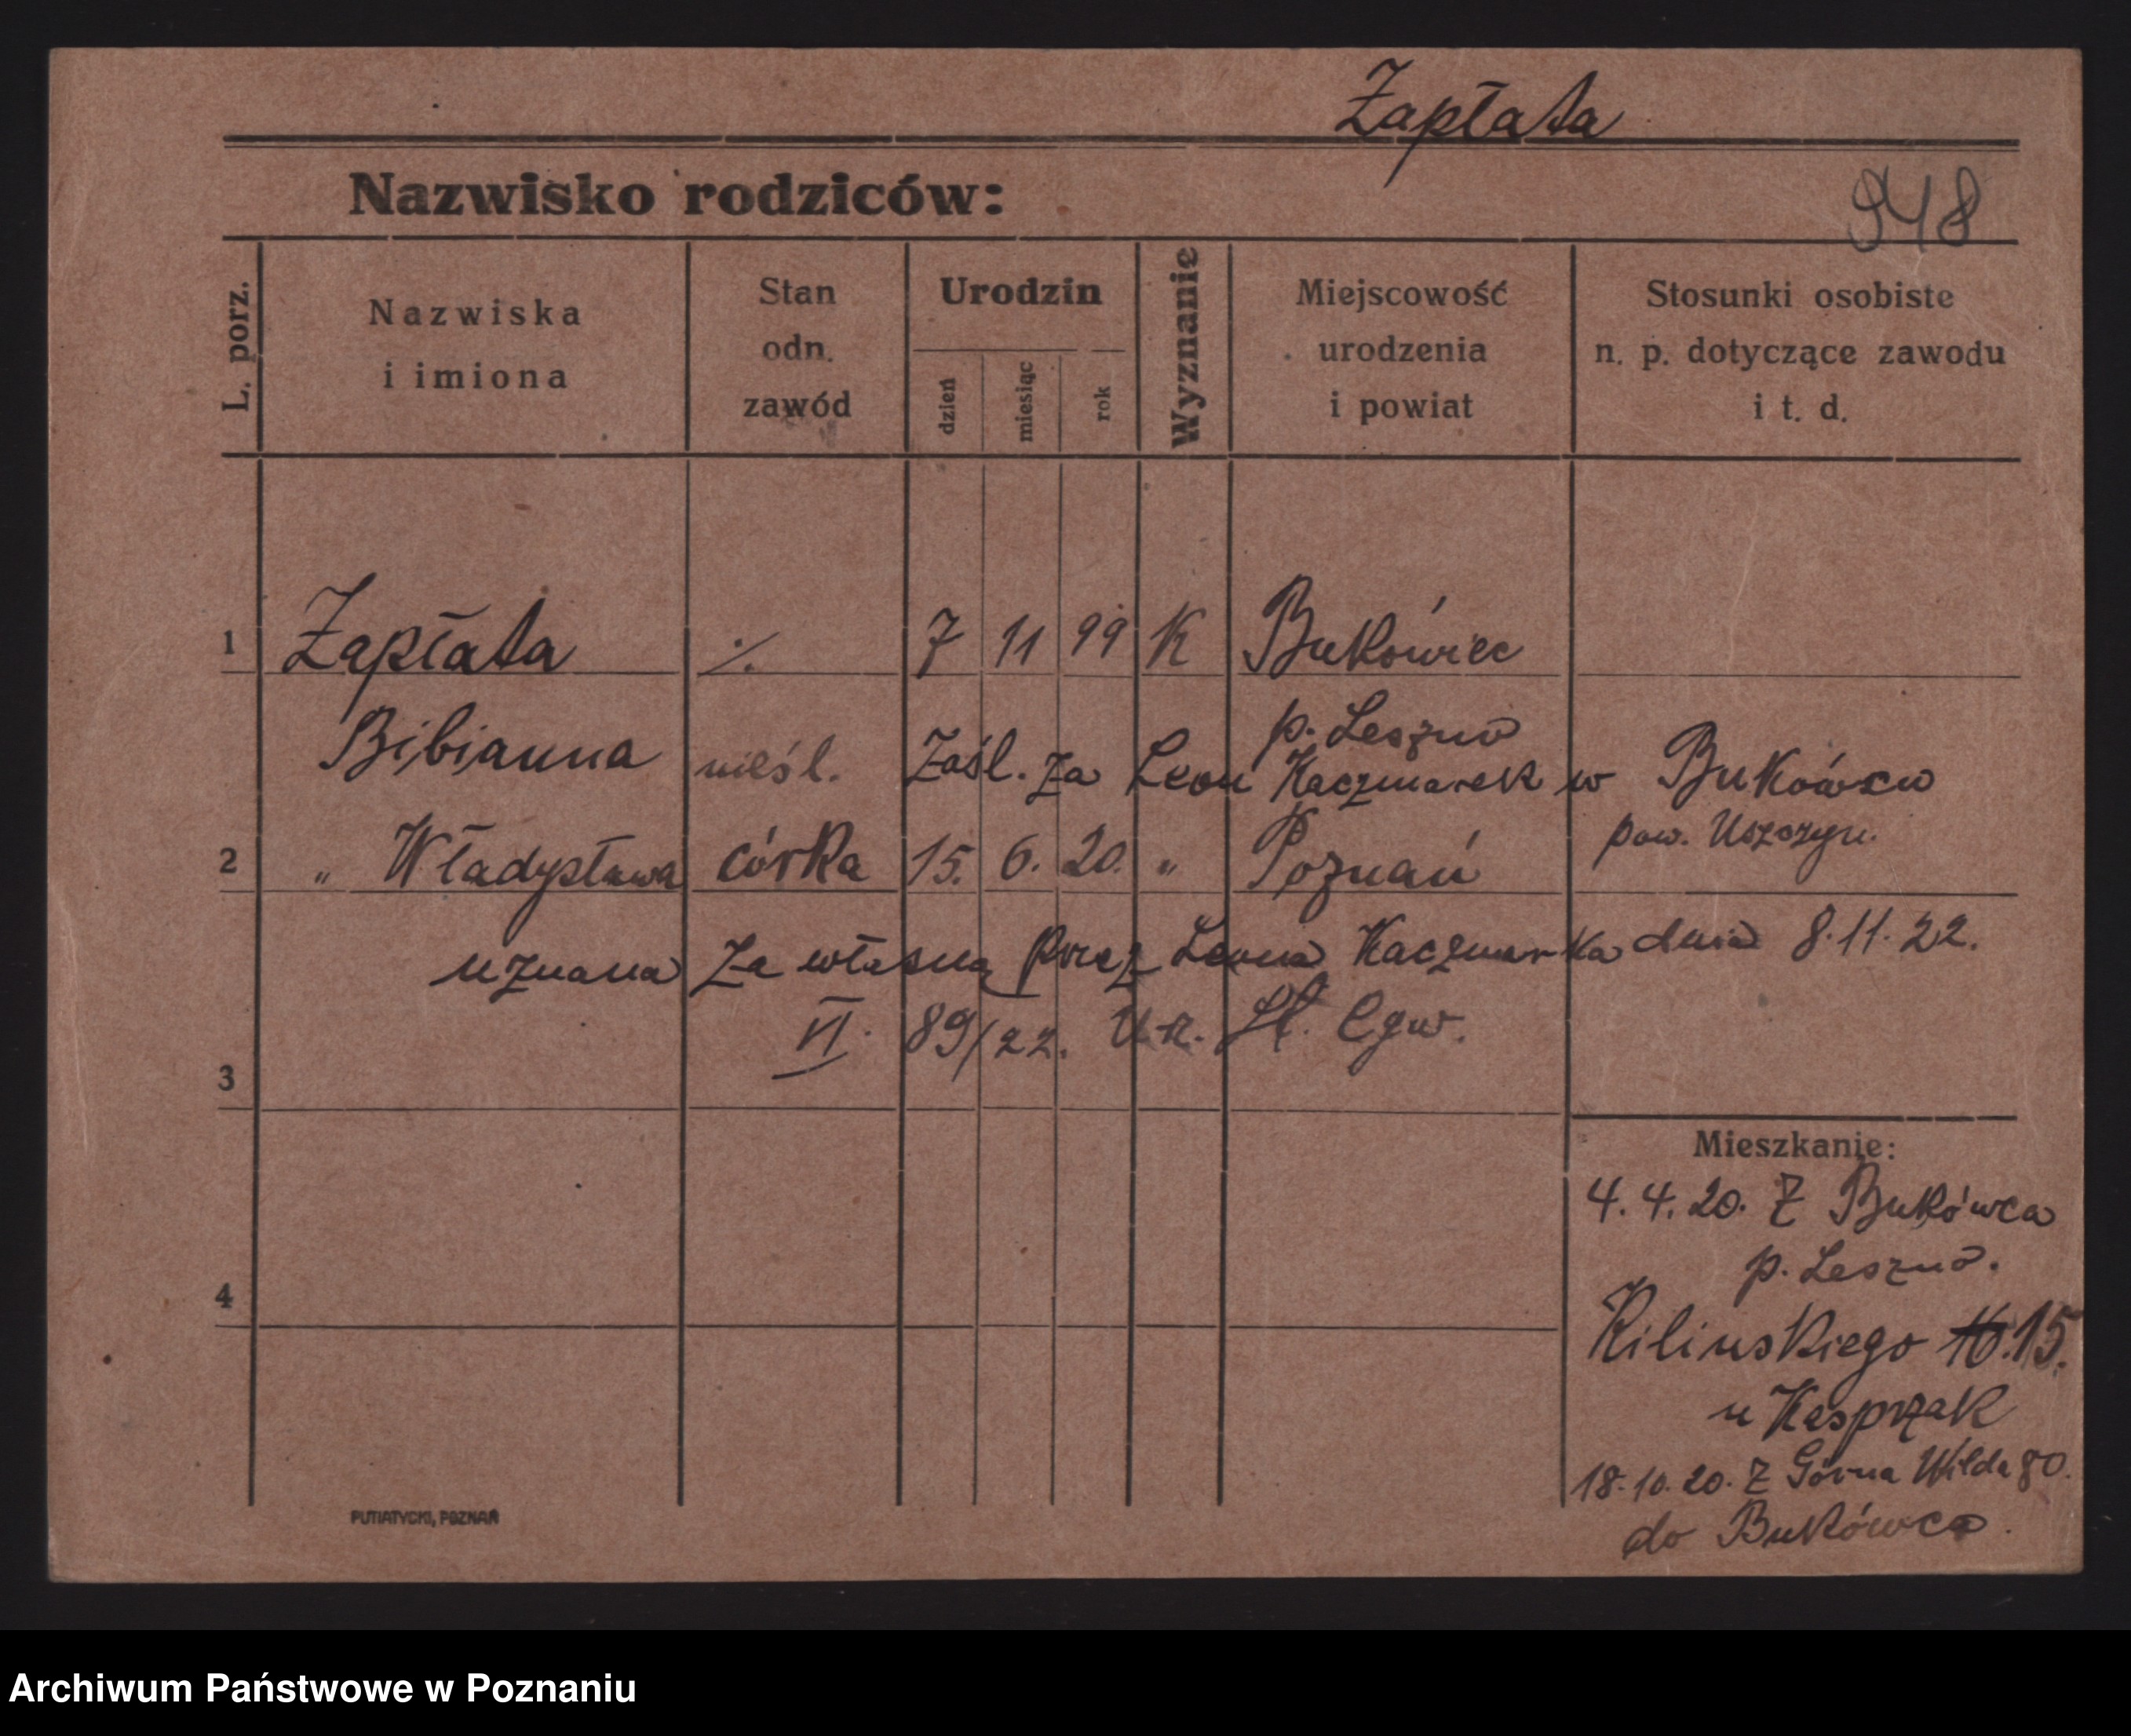 Zapłata
Nazwisko rodziców:
948
L. porz.
Nazwiska
i imiona
Stan
odn.
zawód
Urodzin
dzień
miesiąc
rok
Wyznanie
Miejscowość
urodzenia
i powiat
Stosunki osobiste
n. p. dotyczące zawodu
i t. d.
1 Zapłata ./. 7 11 99 K Bukówiec
p. Leszno
Bibianna nieśl. Zaśl. za Leon Kaczmarek w Bukówcu
pow.
2 " Władysława córka 15. 6. 20. " Poznań
uznana za własną przez Leona Kaczmarka dnia 8.11.22.
VI. 89/22.
3
Mieszkanie:
4.4.20. Z Bukówca
p. Leszno.
4
Kilinskiego 10. 15.
u Kasprzak
18.10.20. Z Górna Wilda 80.
do Bukówca.
PUTIATYCKI, POZNAŃ
Archiwum Państwowe w Poznaniu